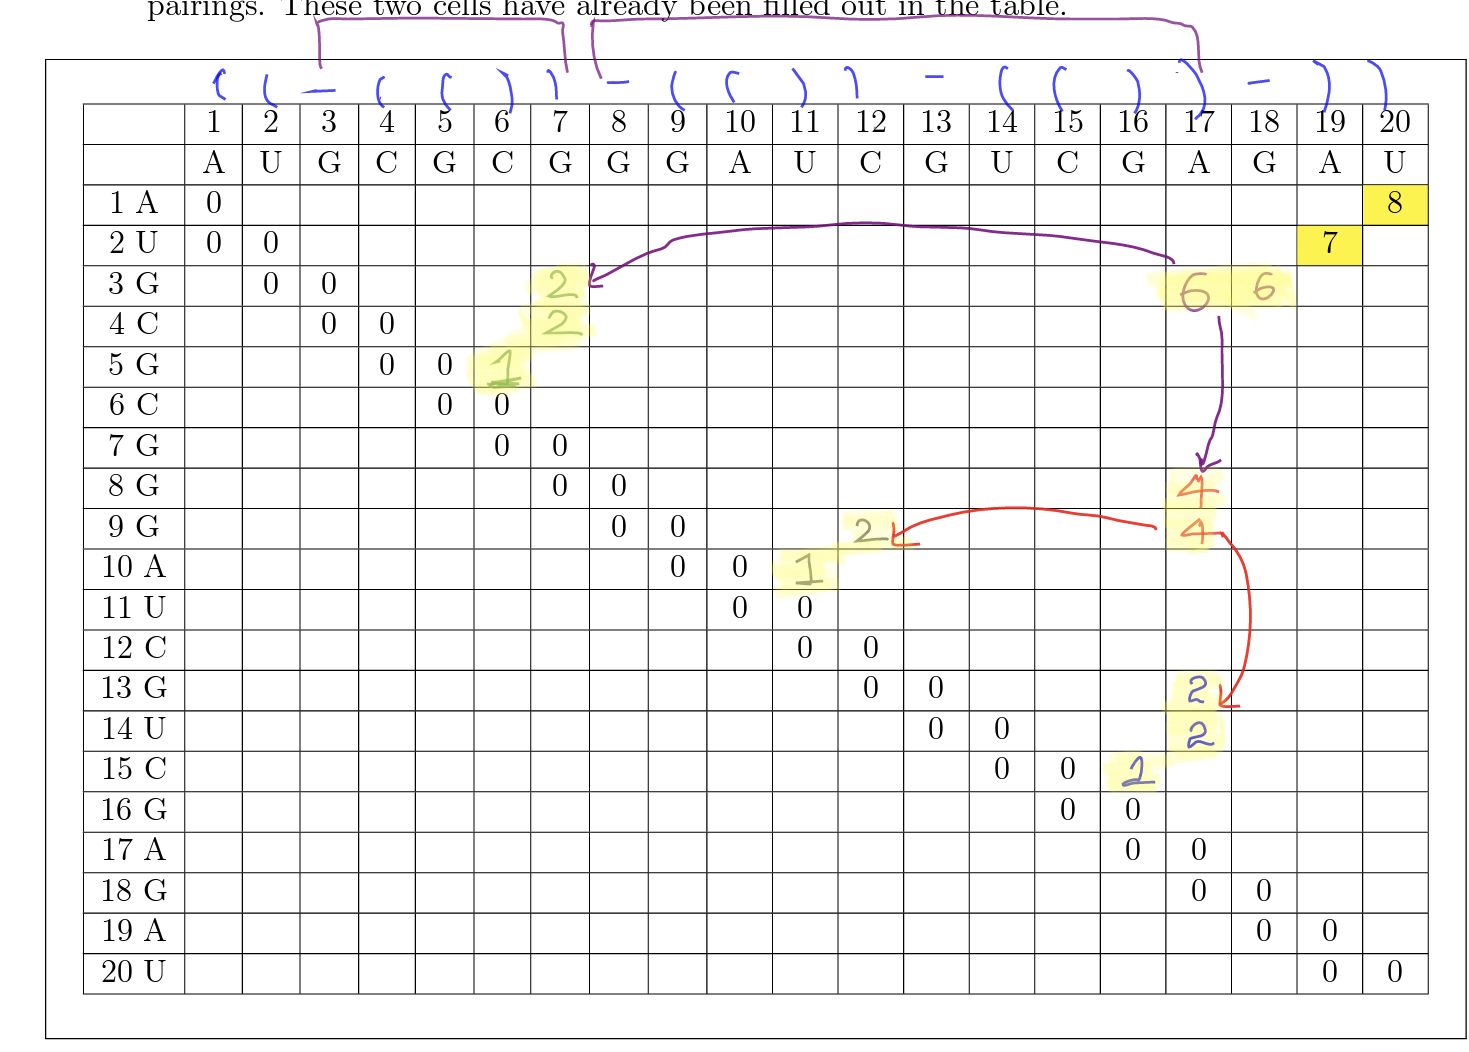 pairings. These two cells have already been filled out in the table.
( ( – ( ( ) ) – ( ( ) ) – ( ( ) ) – ) )
1 2 3 4 5 6 7 8 9 10 11 12 13 14 15 16 17 18 19 20
A U G C G C G G G A U C G U C G A G A U
1 A 0 8
2 U 0 0 7
3 G 0 0 2 6 6
4 C 0 0 2
5 G 0 0 1
6 C 0 0
7 G 0 0
8 G 0 0 4
9 G 0 0 2 4
10 A 0 0 1
11 U 0 0
12 C 0 0
13 G 0 0 2
14 U 0 0 2
15 C 0 0 1
16 G 0 0
17 A 0 0
18 G 0 0
19 A 0 0
20 U 0 0